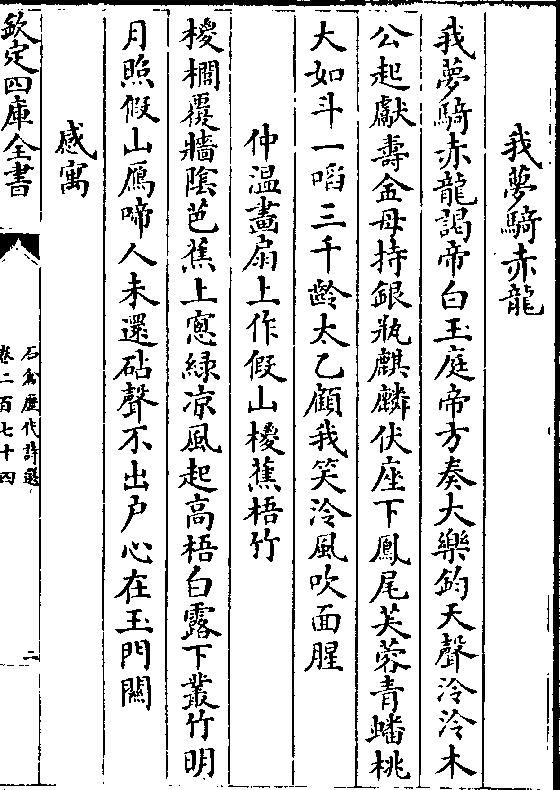 我夢騎赤龍
我夢騎赤龍謁帝白玉庭帝方奏大樂鈞天聲泠泠木
公起獻壽金母持銀瓶麒麟伏座下鳳尾芙蓉青蟠桃
大如斗一啗三千齡太乙顧我笑泠風吹面腥
仲温畫扇上作假山椶蕉梧竹
椶櫚覆牆陰芭蕉上窻緑凉風起高梧白露下叢竹明
月照假山鴈啼人未還砧聲不出户心在玉門闗
感寓
欽定四庫全書
石倉歷代詩選
卷二百七十四
二